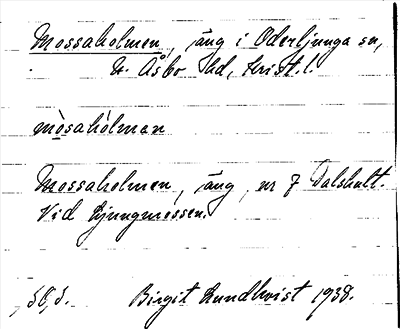 Mossaholmen, äng i Oderljunga sn,
N. Åsbo hd, Krist. l.
mòsahòlman
Mossaholmen, äng, nr 7 Dalshult.
Vid Ljungmossen.
Birgit Lundkvist 1938.